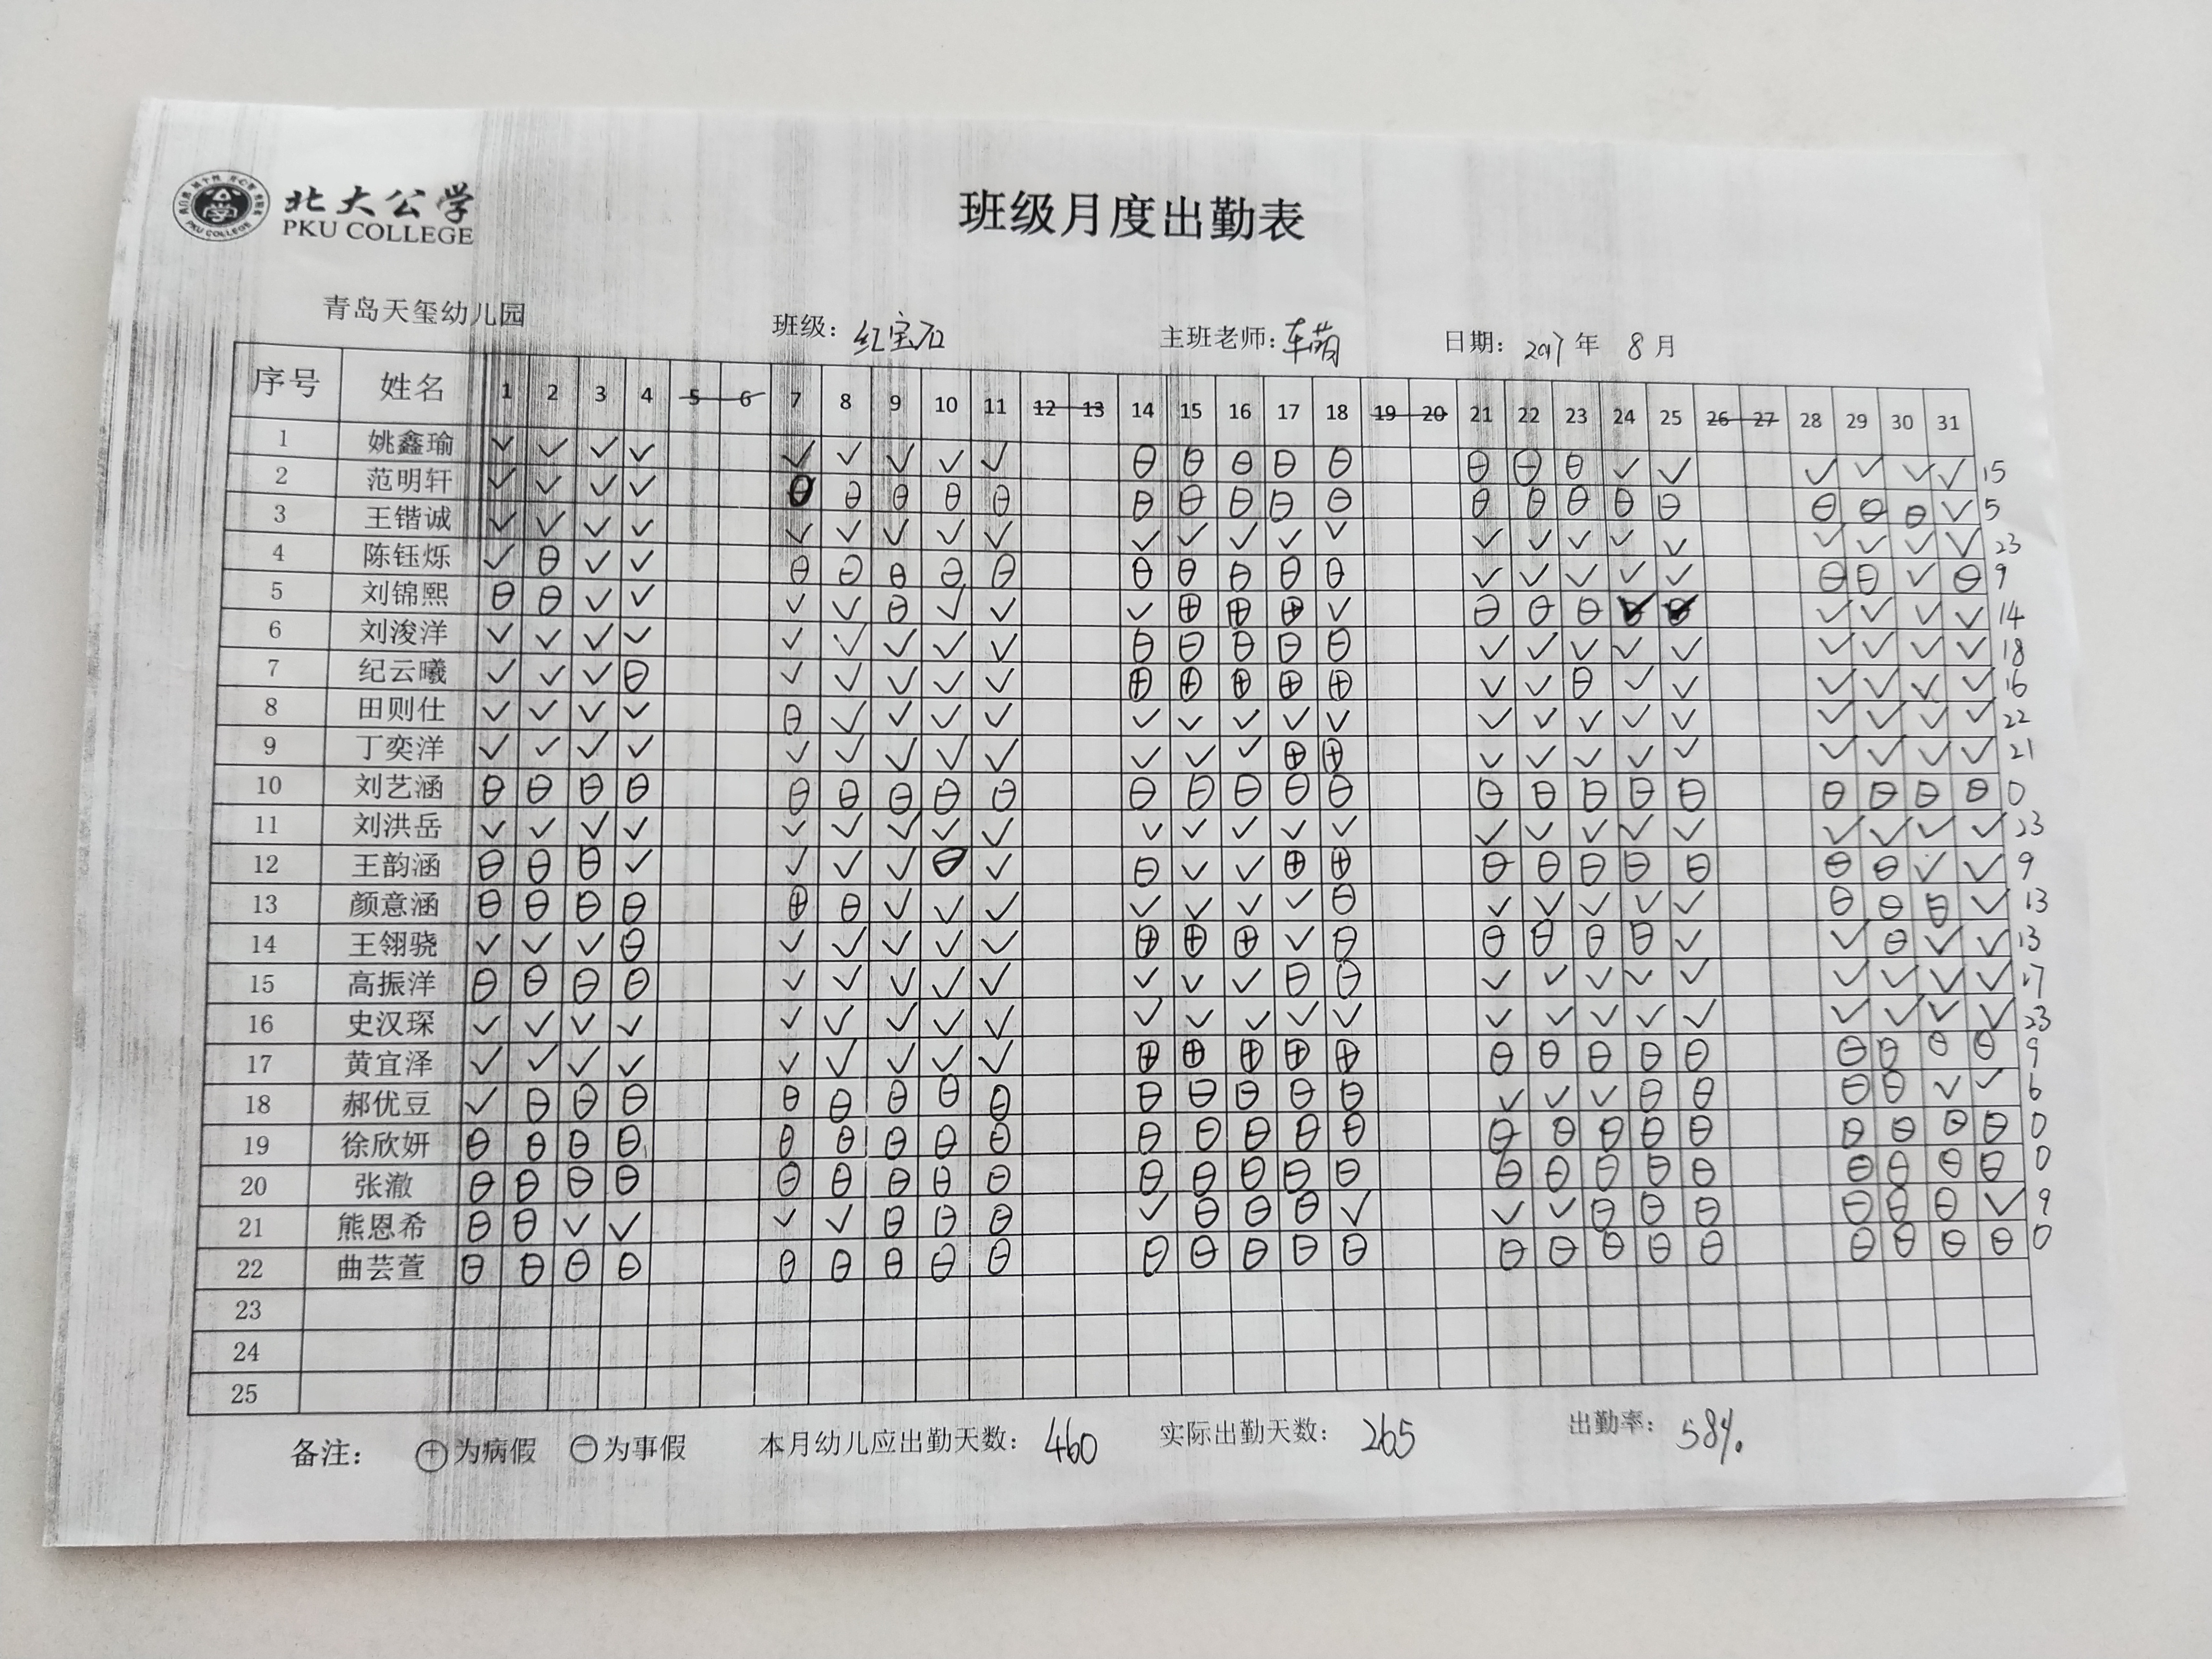 北大公学
PKU COLLEGE
班级月度出勤表
青岛天玺幼儿园 班级：红宝石 主班老师：车萌 日期：2017年 8月
序号 姓名 1 2 3 4 5 6 7 8 9 10 11 12 13 14 15 16 17 18 19 20 21 22 23 24 25 26 27 28 29 30 31
1 姚鑫瑜 ✓ ✓ ✓ ✓ ✓ ✓ ✓ ✓ ✓ ⊖ ⊖ ⊖ ⊖ ⊖ ⊖ ⊖ ⊖ ✓ ✓ ✓ ✓ ✓ ✓ 15
2 范明轩 ✓ ✓ ✓ ✓ ⊖ ⊖ ⊖ ⊖ ⊖ ⊖ ⊖ ⊖ ⊖ ⊖ ⊖ ⊖ ⊖ ⊖ ⊖ ⊖ ⊖ ⊖ ✓ 5
3 王锴诚 ✓ ✓ ✓ ✓ ✓ ✓ ✓ ✓ ✓ ✓ ✓ ✓ ✓ ✓ ✓ ✓ ✓ ✓ ✓ ✓ ✓ ✓ ✓ 23
4 陈钰烁 ✓ ⊖ ✓ ✓ ⊖ ⊖ ⊖ ⊖ ⊖ ⊖ ⊖ ⊖ ⊖ ⊖ ✓ ✓ ✓ ✓ ✓ ⊖ ⊖ ✓ ⊖ 9
5 刘锦熙 ⊖ ⊖ ✓ ✓ ✓ ✓ ⊖ ✓ ✓ ✓ ⊕ ⊕ ⊕ ✓ ⊖ ⊖ ⊖ ✓ ✓ ✓ ✓ ✓ ✓ 14
6 刘浚洋 ✓ ✓ ✓ ✓ ✓ ✓ ✓ ✓ ✓ ⊖ ⊖ ⊖ ⊖ ⊖ ✓ ✓ ✓ ✓ ✓ ✓ ✓ ✓ ✓ 18
7 纪云曦 ✓ ✓ ✓ ⊖ ✓ ✓ ✓ ✓ ✓ ⊕ ⊕ ⊕ ⊕ ⊕ ✓ ✓ ⊖ ✓ ✓ ✓ ✓ ✓ ✓ 16
8 田则仕 ✓ ✓ ✓ ✓ ⊖ ✓ ✓ ✓ ✓ ✓ ✓ ✓ ✓ ✓ ✓ ✓ ✓ ✓ ✓ ✓ ✓ ✓ ✓ 22
9 丁奕洋 ✓ ✓ ✓ ✓ ✓ ✓ ✓ ✓ ✓ ✓ ✓ ✓ ⊕ ⊕ ✓ ✓ ✓ ✓ ✓ ✓ ✓ ✓ ✓ 21
10 刘艺涵 ⊖ ⊖ ⊖ ⊖ ⊖ ⊖ ⊖ ⊖ ⊖ ⊖ ⊖ ⊖ ⊖ ⊖ ⊖ ⊖ ⊖ ⊖ ⊖ ⊖ ⊖ ⊖ ⊖ 0
11 刘洪岳 ✓ ✓ ✓ ✓ ✓ ✓ ✓ ✓ ✓ ✓ ✓ ✓ ✓ ✓ ✓ ✓ ✓ ✓ ✓ ✓ ✓ ✓ ✓ 23
12 王韵涵 ⊖ ⊖ ⊖ ✓ ✓ ✓ ✓ ⊖ ✓ ⊖ ✓ ✓ ⊕ ⊕ ⊖ ⊖ ⊖ ⊖ ⊖ ⊖ ⊖ ✓ ✓ 9
13 颜意涵 ⊖ ⊖ ⊖ ⊖ ⊕ ⊖ ✓ ✓ ✓ ✓ ✓ ✓ ✓ ⊖ ✓ ✓ ✓ ✓ ✓ ⊖ ⊖ ⊖ ✓ 13
14 王翎骁 ✓ ✓ ✓ ⊖ ✓ ✓ ✓ ✓ ✓ ⊕ ⊕ ⊕ ✓ ⊖ ⊖ ⊖ ⊖ ⊖ ✓ ✓ ⊖ ✓ ✓ 13
15 高振洋 ⊖ ⊖ ⊖ ⊖ ✓ ✓ ✓ ✓ ✓ ✓ ✓ ✓ ⊖ ⊖ ✓ ✓ ✓ ✓ ✓ ✓ ✓ ✓ ✓ 17
16 史汉琛 ✓ ✓ ✓ ✓ ✓ ✓ ✓ ✓ ✓ ✓ ✓ ✓ ✓ ✓ ✓ ✓ ✓ ✓ ✓ ✓ ✓ ✓ ✓ 23
17 黄宜泽 ✓ ✓ ✓ ✓ ✓ ✓ ✓ ✓ ✓ ⊕ ⊕ ⊕ ⊕ ⊕ ⊖ ⊖ ⊖ ⊖ ⊖ ⊖ ⊖ ⊖ ⊖ 9
18 郝优豆 ✓ ⊖ ⊖ ⊖ ⊖ ⊖ ⊖ ⊖ ⊖ ⊖ ⊖ ⊖ ⊖ ⊖ ✓ ✓ ✓ ⊖ ⊖ ⊖ ⊖ ✓ ✓ 6
19 徐欣妍 ⊖ ⊖ ⊖ ⊖ ⊖ ⊖ ⊖ ⊖ ⊖ ⊖ ⊖ ⊖ ⊖ ⊖ ⊖ ⊖ ⊖ ⊖ ⊖ ⊖ ⊖ ⊖ ⊖ 0
20 张澈 ⊖ ⊖ ⊖ ⊖ ⊖ ⊖ ⊖ ⊖ ⊖ ⊖ ⊖ ⊖ ⊖ ⊖ ⊖ ⊖ ⊖ ⊖ ⊖ ⊖ ⊖ ⊖ ⊖ 0
21 熊恩希 ⊖ ⊖ ✓ ✓ ✓ ✓ ⊖ ⊖ ⊖ ✓ ⊖ ⊖ ⊖ ✓ ✓ ✓ ⊖ ⊖ ⊖ ⊖ ⊖ ⊖ ✓ 9
22 曲芸萱 ⊖ ⊖ ⊖ ⊖ ⊖ ⊖ ⊖ ⊖ ⊖ ⊖ ⊖ ⊖ ⊖ ⊖ ⊖ ⊖ ⊖ ⊖ ⊖ ⊖ ⊖ ⊖ ⊖ 0
23
24
25
备注： ⊕为病假 ⊖为事假 本月幼儿应出勤天数：460 实际出勤天数：265 出勤率：58%